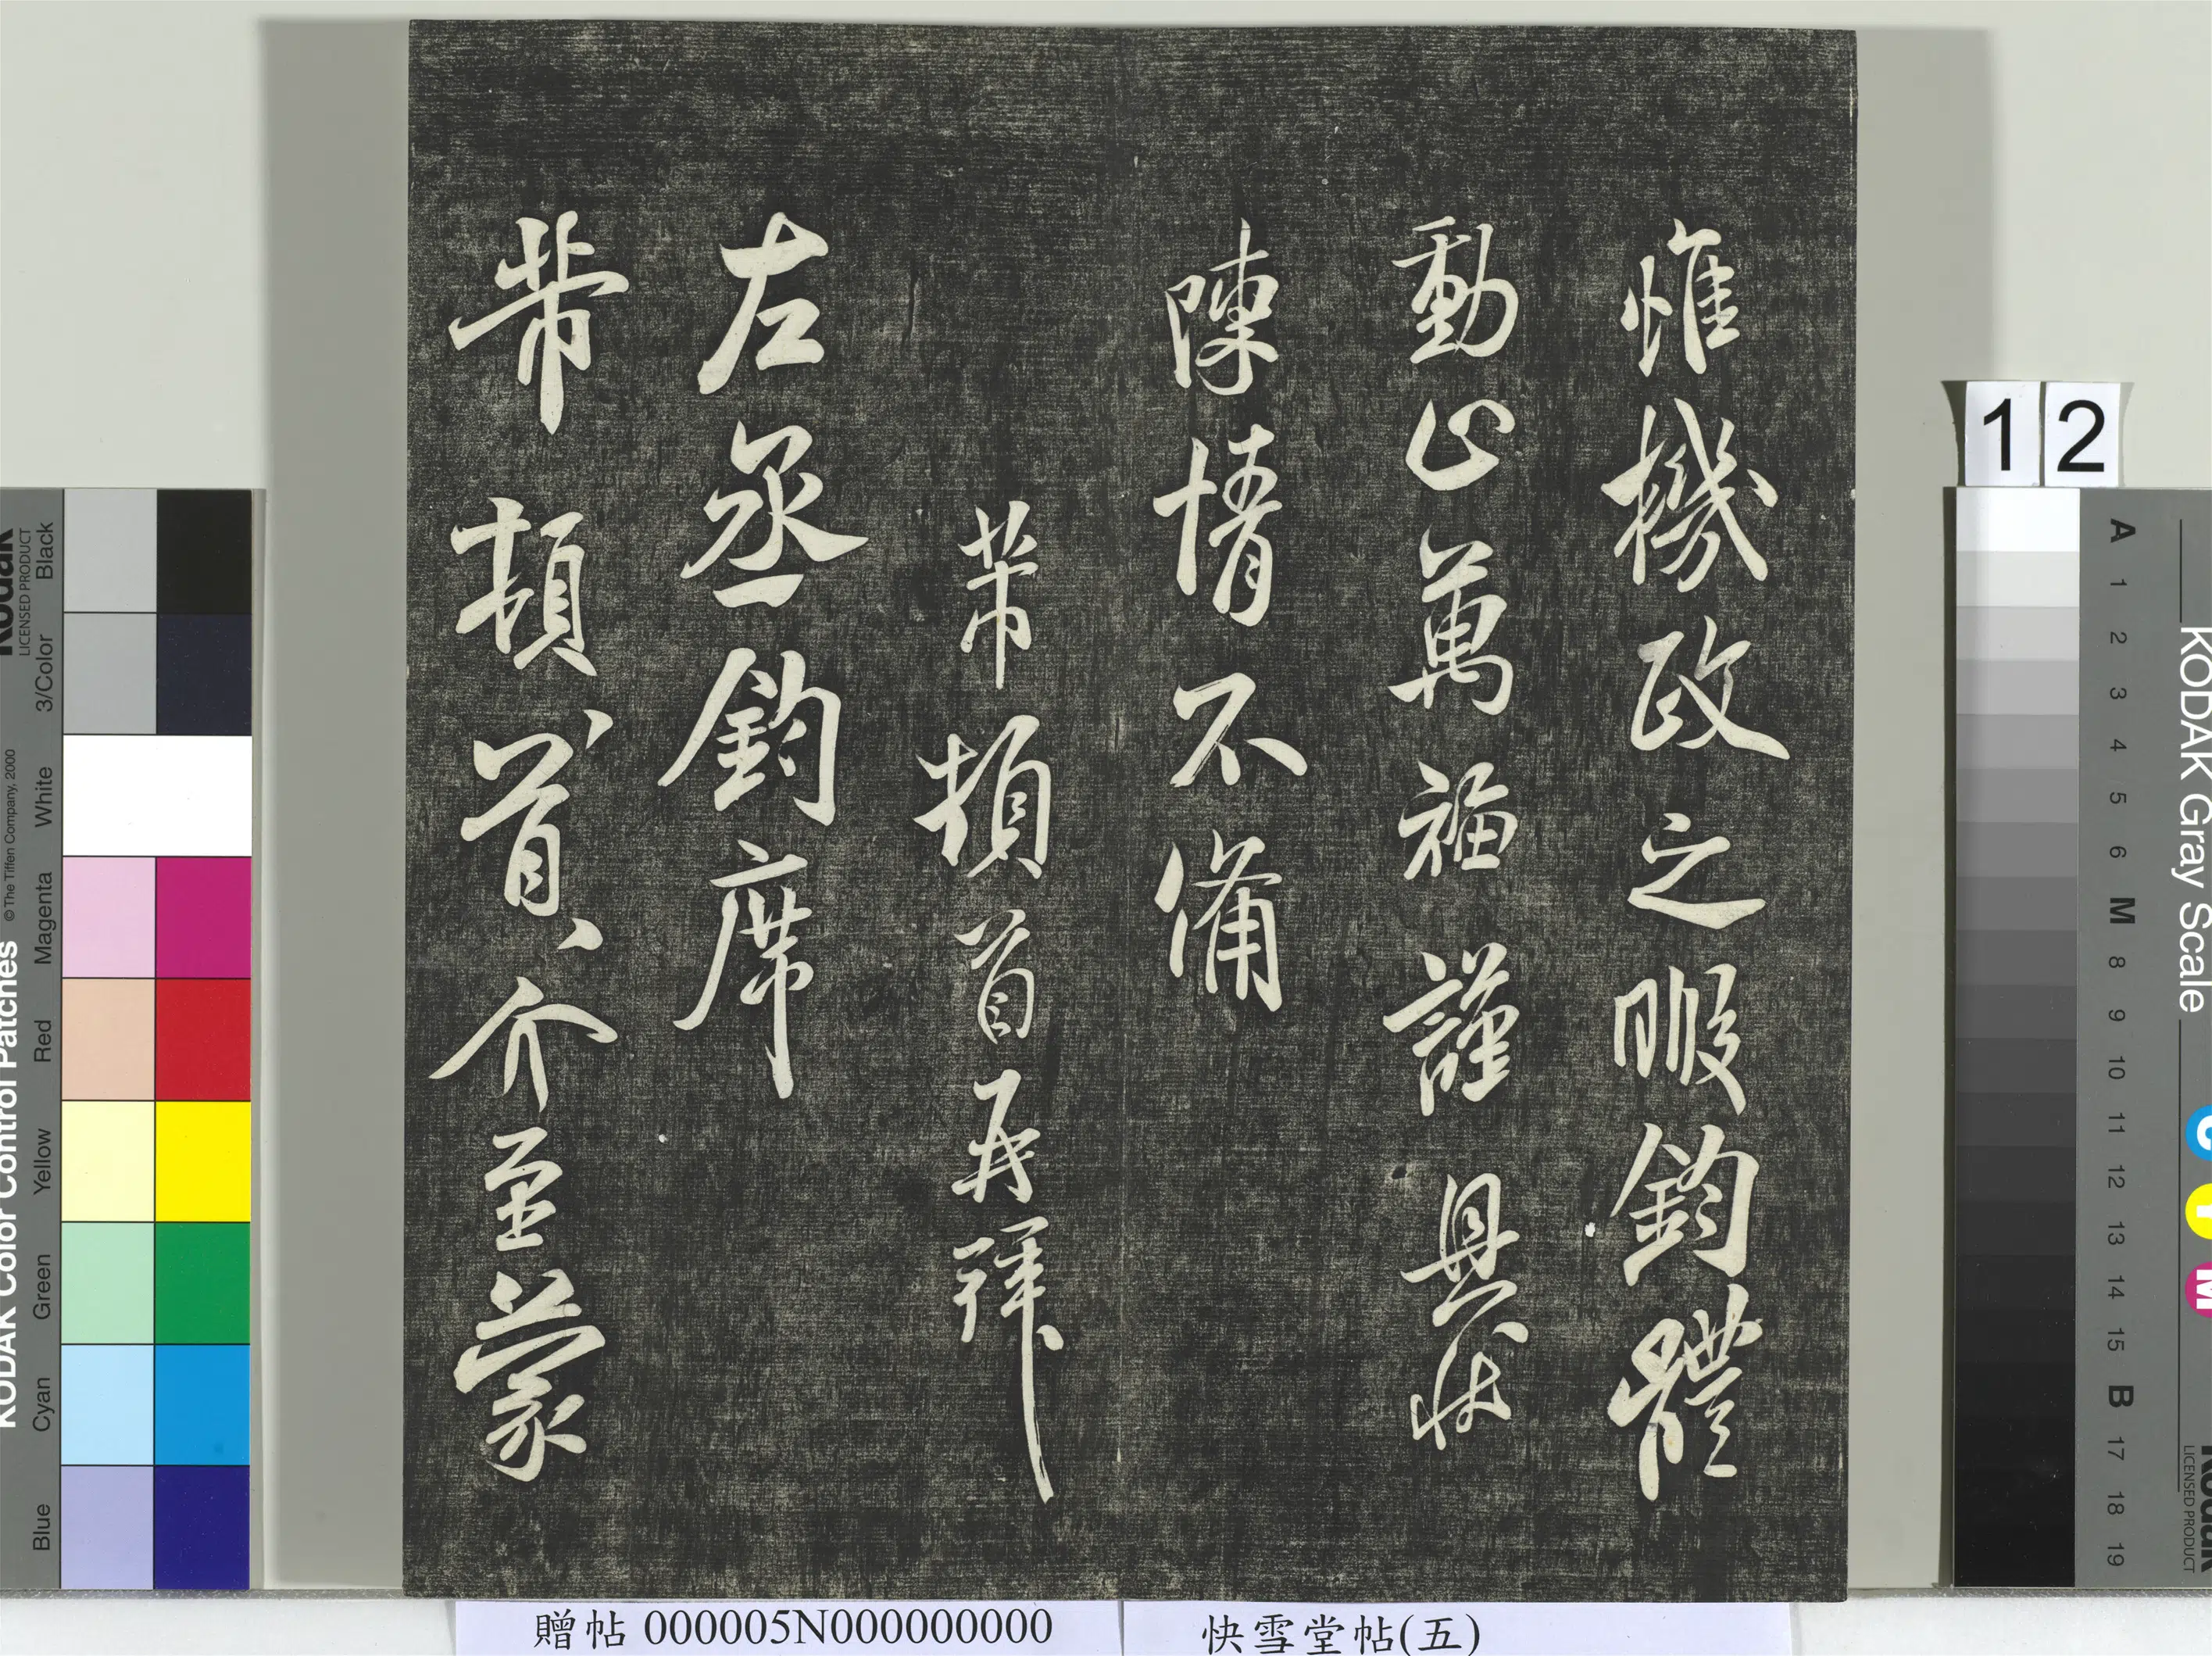 惟機政之暇鈞體
動止萬福謹具狀
陳情不備
芾頓首再拜
左丞鈞席
芾頓首介至蒙
贈帖 000005N000000000
快雪堂帖(五)
12
KODAK Color Control Patches
Kodak
LICENSED PRODUCT
© The Tiffen Company, 2000
Blue Cyan Green Yellow Red Magenta White 3/Color Black
KODAK Gray Scale
C Y M
Kodak
LICENSED PRODUCT
A 1 2 3 4 5 6 M 8 9 10 11 12 13 14 15 B 17 18 19